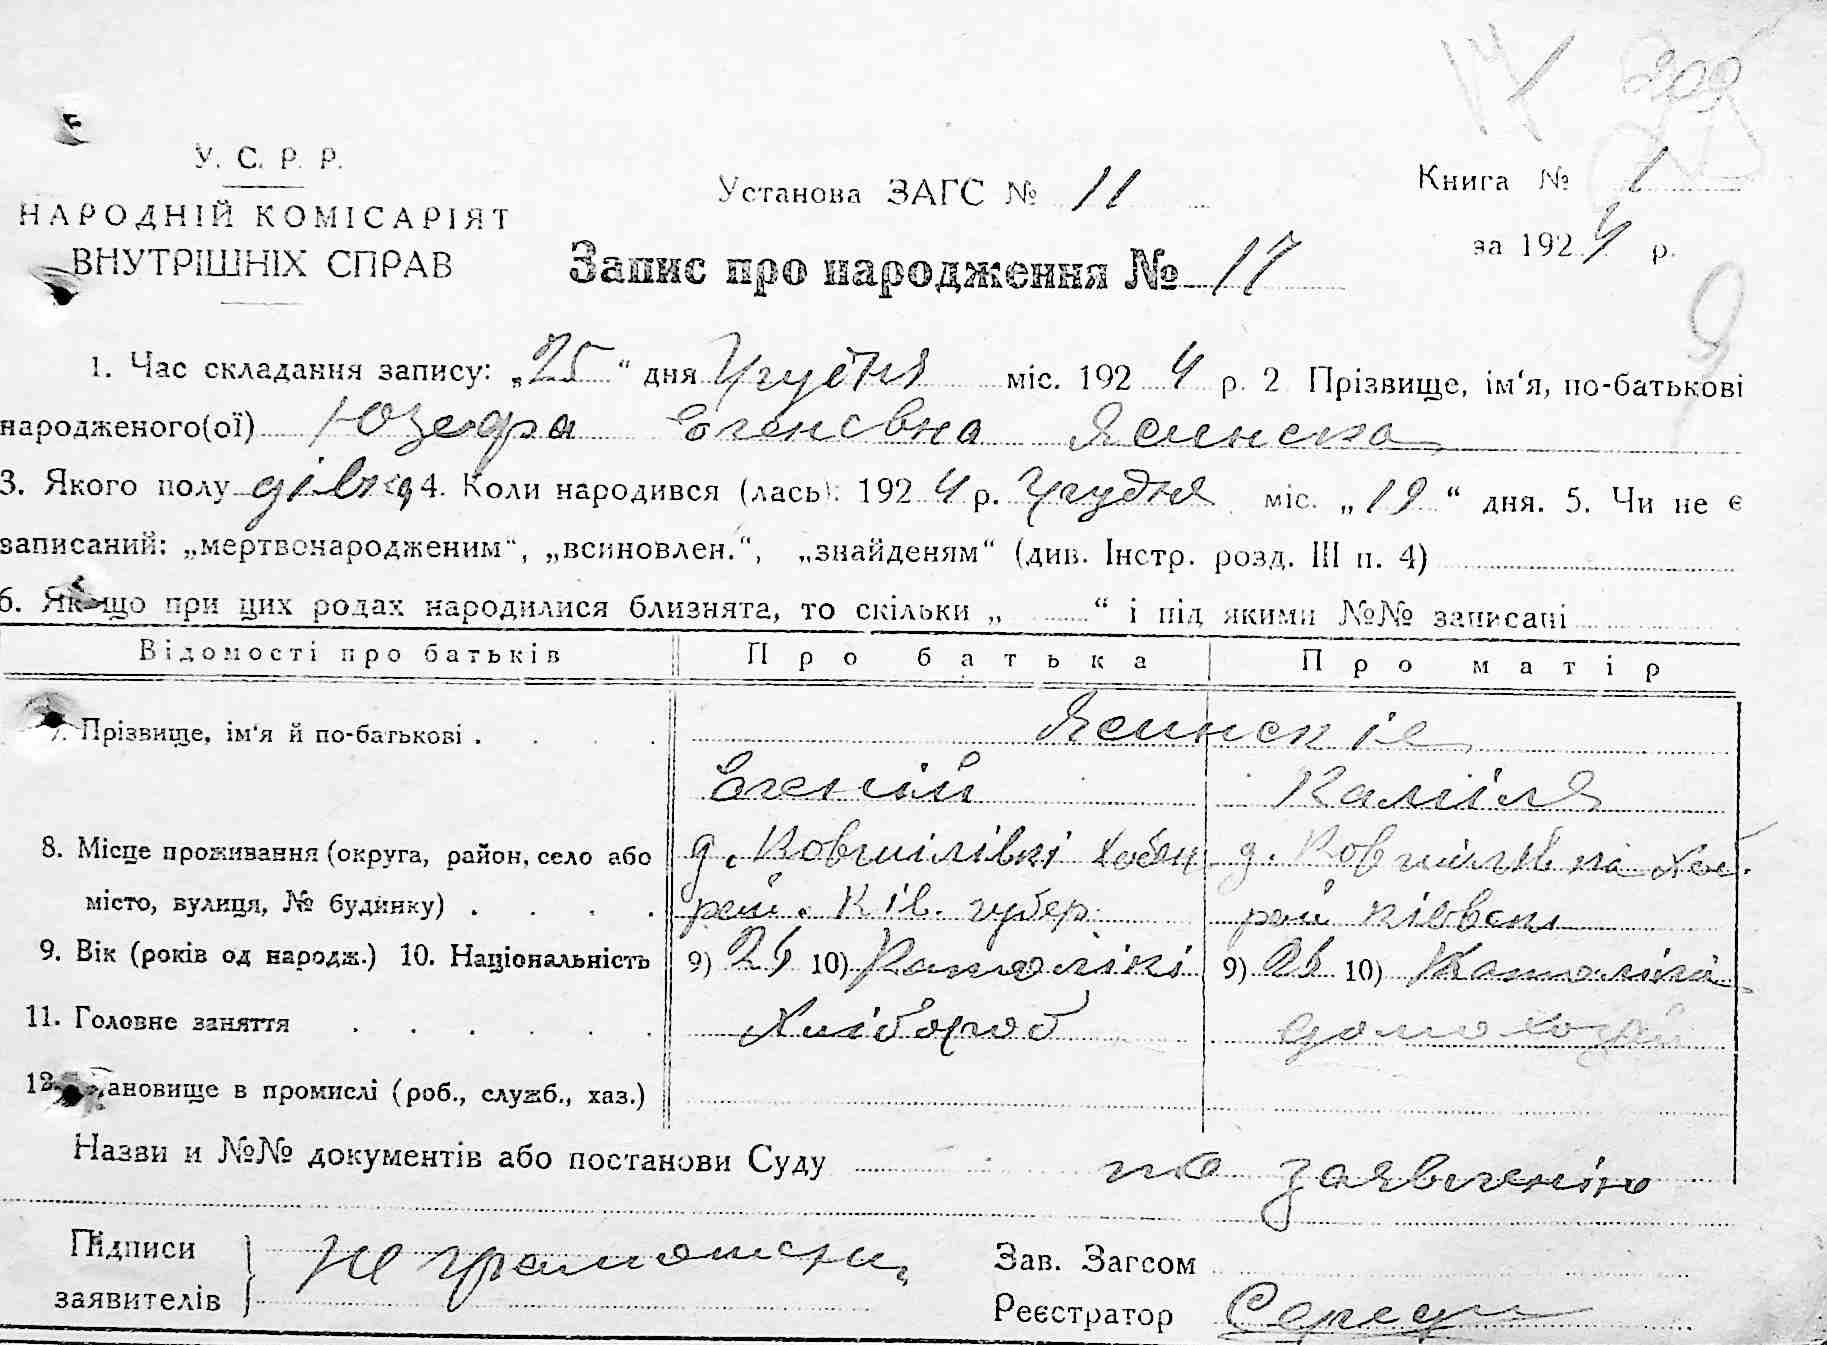 14 309
У. С. Р. Р.
НАРОДНІЙ КОМІСАРІЯТ
ВНУТРІШНІХ СПРАВ
Установа ЗАГС № 11
Книга № 1
за 1924 р.
Запис про народження № 17
9
1. Час складання запису: „25“ дня Грудня міс. 1924 р. 2 Прізвище, ім'я, по-батькові
народженого(ої) Юзефа Егенєвна Ясинска
3. Якого полу дівка 4. Коли народився (лась): 1924 р. Грудня міс. „19“ дня. 5. Чи не є
записаний: „мертвонародженим“, „всиновлен.“, „знайденям“ (див. Інстр. розд. III п. 4)
6. Якщо при цих родах народилися близнята, то скільки „ “ і під якими №№ записані
Відомості про батьків Про батька Про матір
7. Прізвище, ім'я й по-батькові . . . . Ясинскіе
Егеній Каміля
8. Місце проживання (округа, район, село або д. Ковшилівкі Хабен д. Ковшилівкі Хаб.
місто, вулиця, № будинку) . . . . рай. Ків. губер. рай Ківвск
9. Вік (років од народж.) 10. Національність 9) 26 10) Католікі 9) 26 10) Католікі
11. Головне заняття . . . . . . Хлібороб домохозяй
12. Становище в промислі (роб., служб., хаз.)
Назви и №№ документів або постанови Суду по заявленію
Підписи
заявителів } Не грамотни
Зав. Загсом
Реєстратор